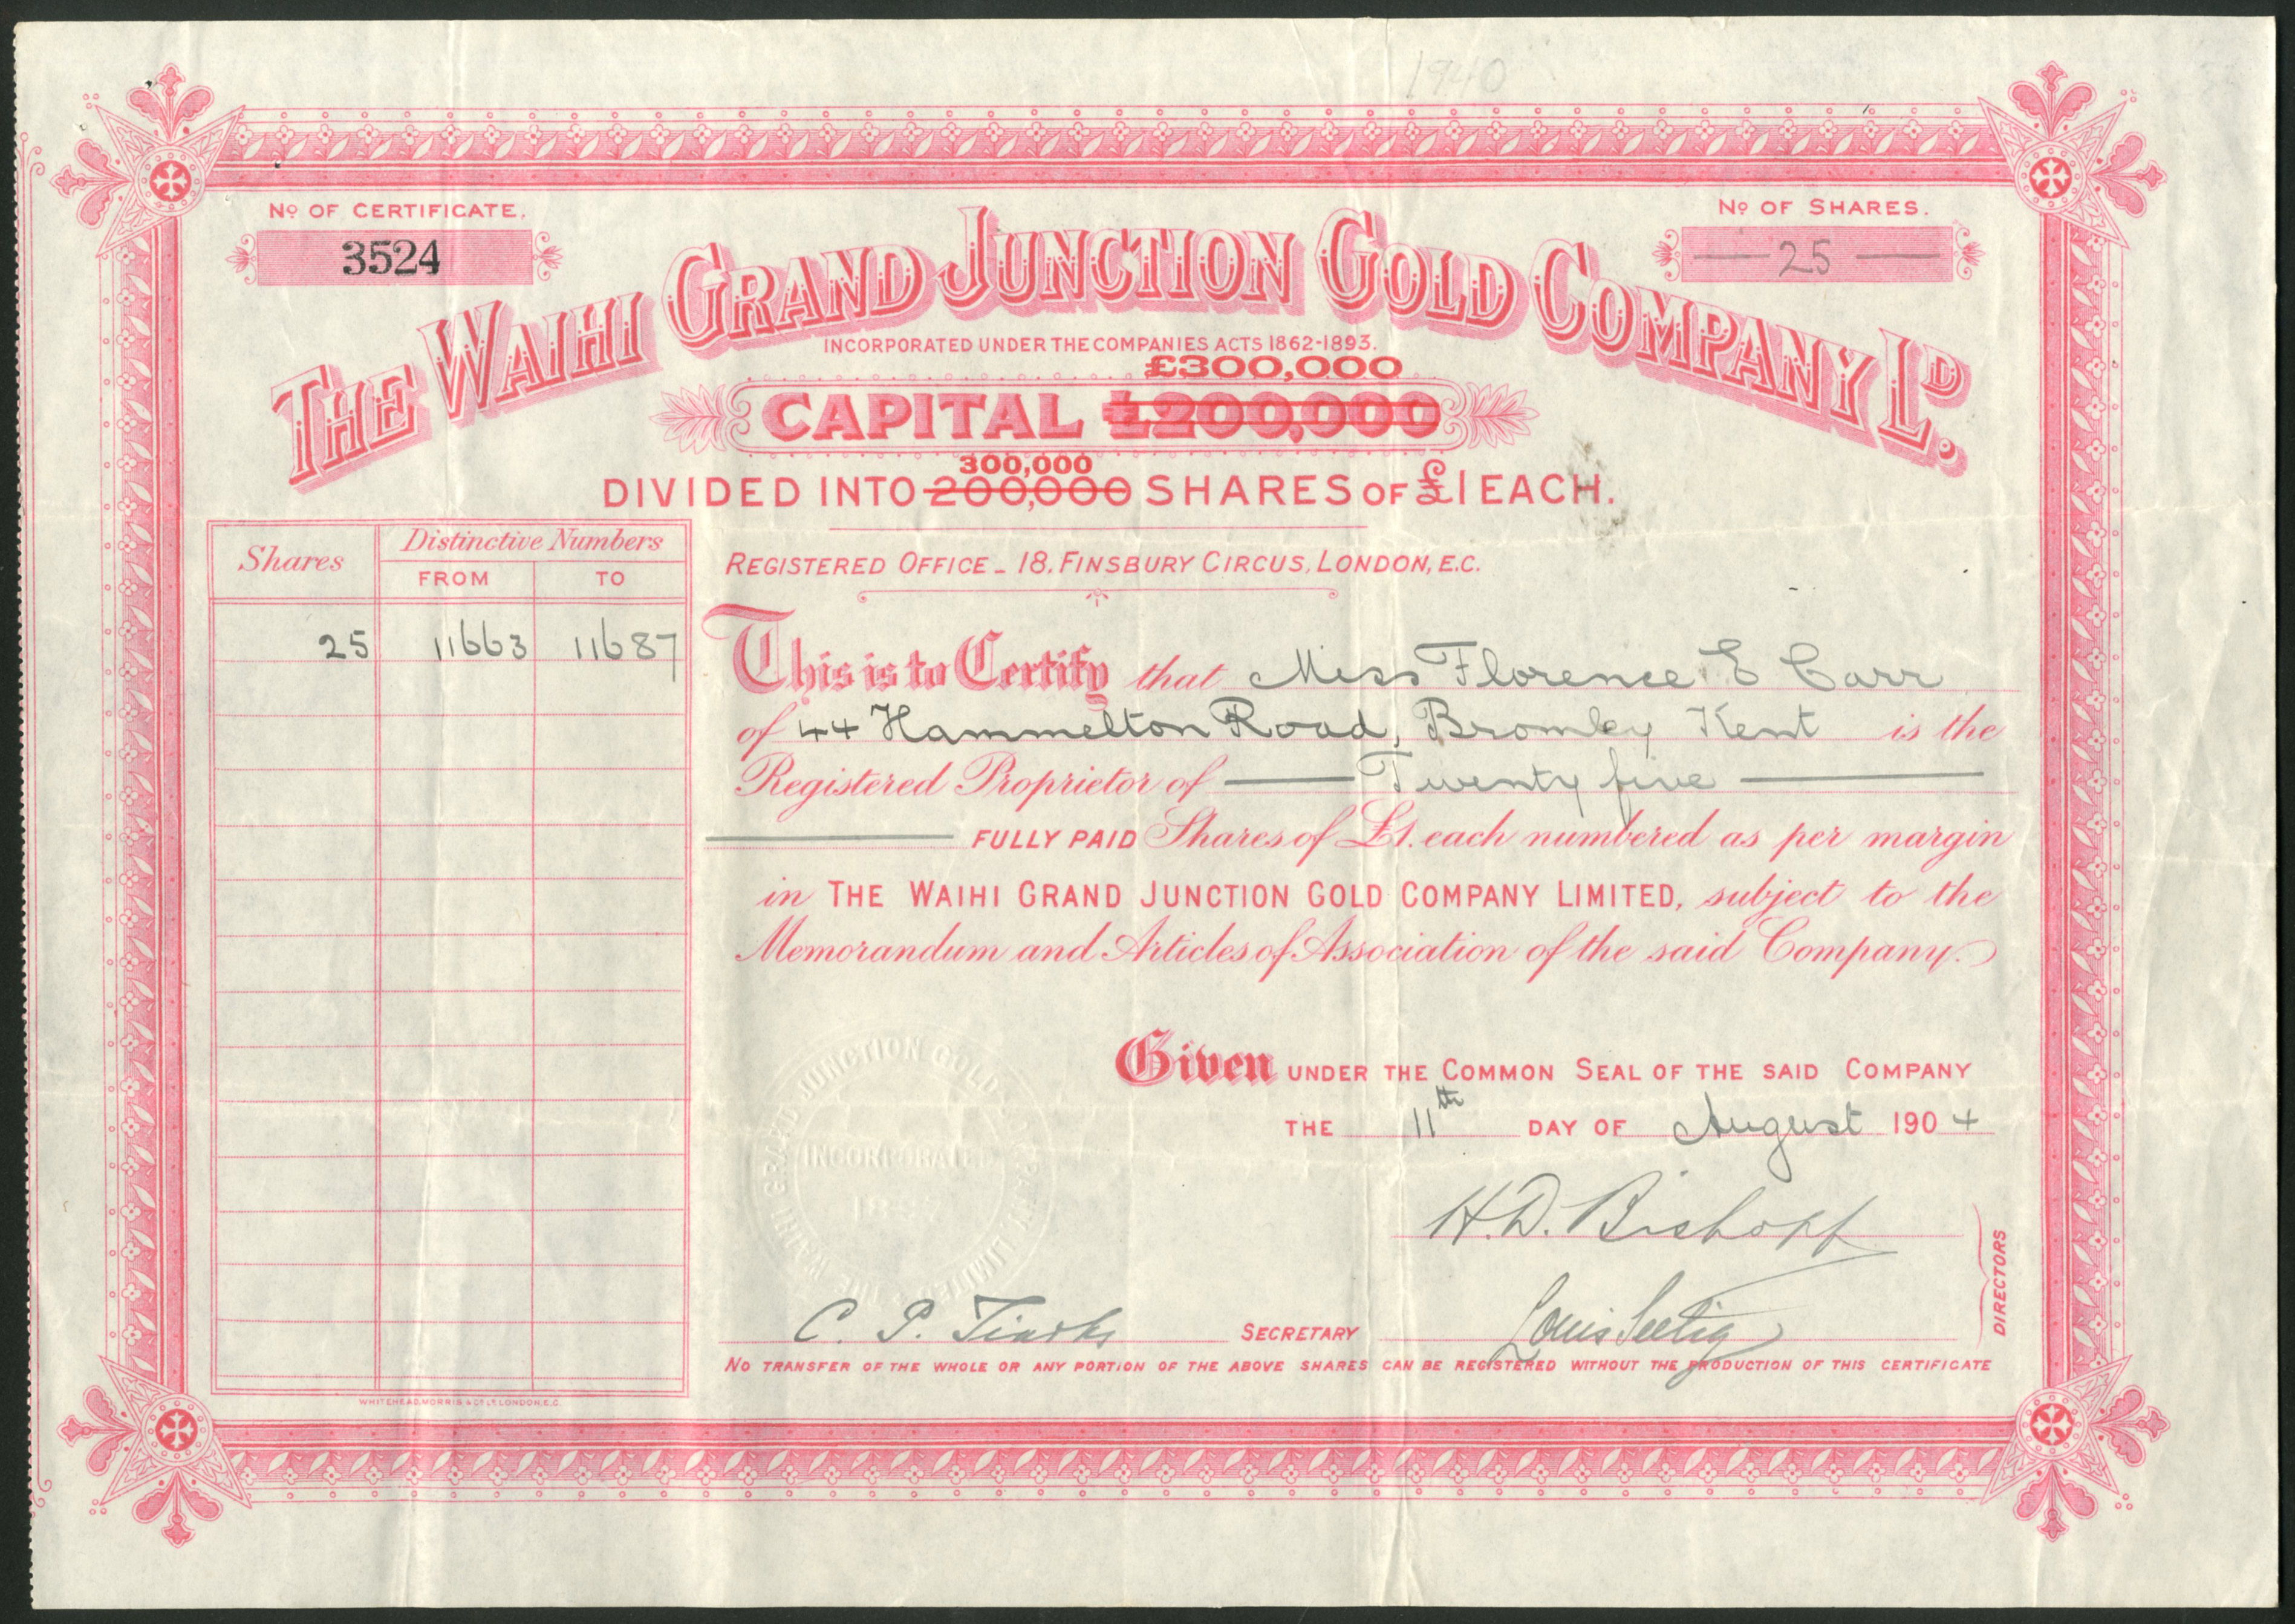 1940
No OF CERTIFICATE.
3524
No OF SHARES.
25
THE WAIHI GRAND JUNCTION GOLD COMPANY LD.
INCORPORATED UNDER THE COMPANIES ACTS 1862-1893.
£300,000
CAPITAL £200,000
300,000
DIVIDED INTO 200,000 SHARES OF £1 EACH.
REGISTERED OFFICE _ 18, FINSBURY CIRCUS, LONDON, E.C.
Shares Distinctive Numbers
FROM TO
25 11663 11687
This is to Certify that Miss Florence E Carr
of 44 Hammelton Road, Bromley Kent is the
Registered Proprietor of Twenty five
FULLY PAID Shares of £1. each numbered as per margin
in THE WAIHI GRAND JUNCTION GOLD COMPANY LIMITED, subject to the
Memorandum and Articles of Association of the said Company.
Given UNDER THE COMMON SEAL OF THE SAID COMPANY
THE 11th DAY OF August 1904
THE WAIHI GRAND JUNCTION GOLD COMPANY LIMITED
INCORPORATED
H.D. Bishopf
DIRECTORS
C. P. SECRETARY Louis Seelig
NO TRANSFER OF THE WHOLE OR ANY PORTION OF THE ABOVE SHARES CAN BE REGISTERED WITHOUT THE PRODUCTION OF THIS CERTIFICATE
WHITEHEAD, MORRIS & Co LD LONDON, E.C.